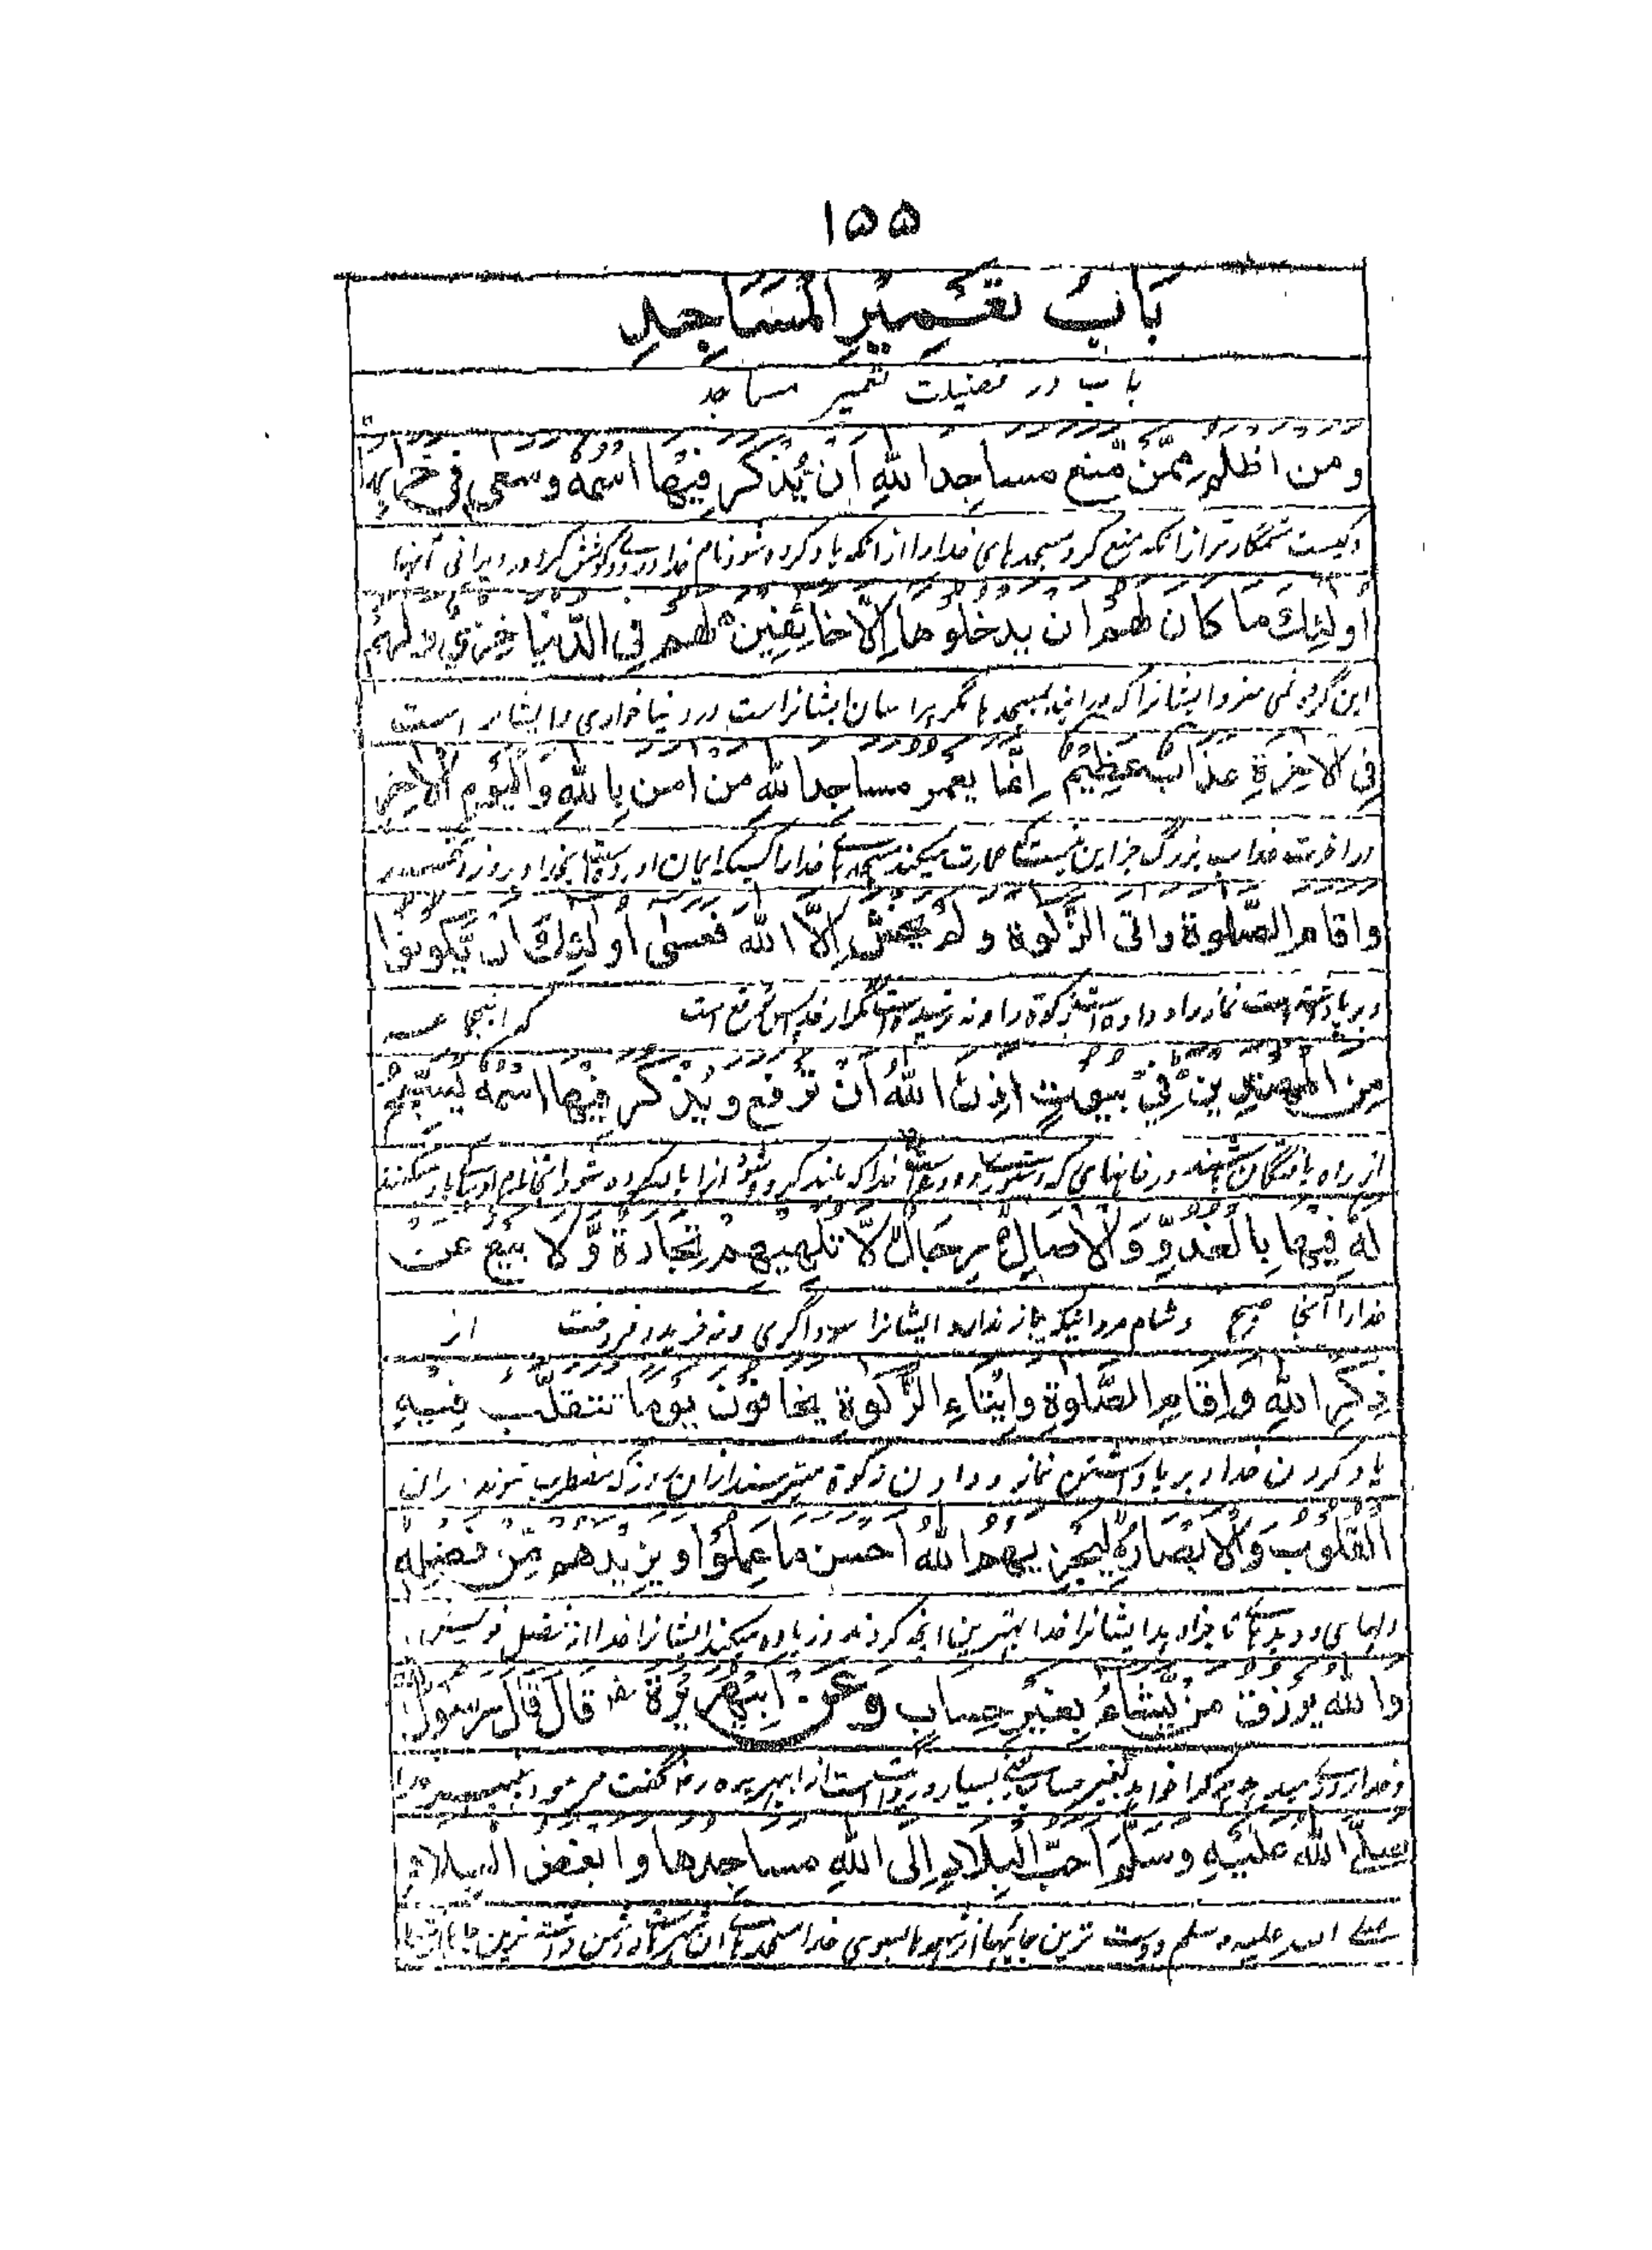 ۱۵۵
بَابُ تَعْمِيْرِ الْمَسَاجِدِ
باب در فضیلت تعمیر مساجد
ومن اظلم ممّن مّنع مساجد اللهِ اَنْ يُذْكَرَ فِيْهَا اسْمُهٗ وسعى فِي خرابها
وکیست ستمگارتر از انکه منع کرد مسجدهای خدا را از انکه یاد کرده شود نام خدا در وے وکوشش کرد در ویرانی آنها
اُولٰئِكَ مَا كان لهم ان يدخلوها اِلّا خائِفِيْن لهم فِى الدّنيا خِزيٌ ولهم
این گروه نمی سزد ایشانرا که در ایند بمسجدها مگر ترسان ایشانراست در دنیا خواری و ایشانراست
فِى الاٰخِرَةِ عذابٌ عظِيْمٌ اِنّما يعمر مساجد اللهِ من اٰمن بِاللهِ وَالْيَوْمِ الْاٰخِرِ
در اخرت عذاب بزرگ جز این نیست که عمارت میکند مسجدهاے خدا را کسیکه ایمان اورده است بخدا و روز
واقام الصّلوة واٰتى الزّكوة ولم يخش اِلّا الله فعسٰى اُولٰئِكَ ان يّكونوا
وبرپا داشته است نماز را و داده است زکوة را و نه ترسیده است مگر از خدا پس متوقع است که اینجماعه
مِن المهتدِين فِيْ بيوتٍ اذِنَ اللهُ اَنْ تُرْفع ويُذْكَر فِيْهَا اسْمُهٗ يُسَبِّحُ
از راه یافتگان باشند در خانهای که دستوری داده است خدا که بلند کرده شود انرا و یاد کرده شود انجا نام او بپاکی یاد میکنند
لهٗ فِيها بِالْغدوِّ وَالْاٰصَالِ رِجَالٌ لّا تلهيهم تِجَارةٌ وَّلا بيعٌ عن
خدا را آنجا صبح و شام مردانیکه باز ندارد ایشانرا سوداگری و نه خرید و فروخت از
ذِكرِ اللهِ واِقامِ الصّلوةِ واِيتاءِ الزَّكوة يخافون يوما تتقلّب فِيهِ
یاد کردن خدا و برپا داشتن نماز و دادن زکوة میترسند از ان روز که مضطرب شوند دران
الْقلوب وَالْابصار لِيجزِيهم اللهُ احسن ما عمِلوا ويزيدهم مِّن فضلِهٖ
دلهای و دیدها تا جزا دهد ایشانرا خدا بهترین انچه کردند و زیاده میکند ایشانرا خدا از فضل خویش
والله يرزق من يّشاءُ بغيرِ حِساب وعن ابي هريرة رض قال قال رسول
و خدا روزی میدهد هر کرا خواهد بغیر حساب یعنے بسیار و روایت است از ابی هریره رض گفت فرمود پیغمبر خدا
صلى الله عليهِ وسلّم احبّ البلادِ الى اللهِ مساجِدها وابغض البلاد
صلے الله علیه وسلم دوست ترین جایها از شهرها بسوی خدا مسجدهاے آن شهرهاست و دشمن داشته ترین